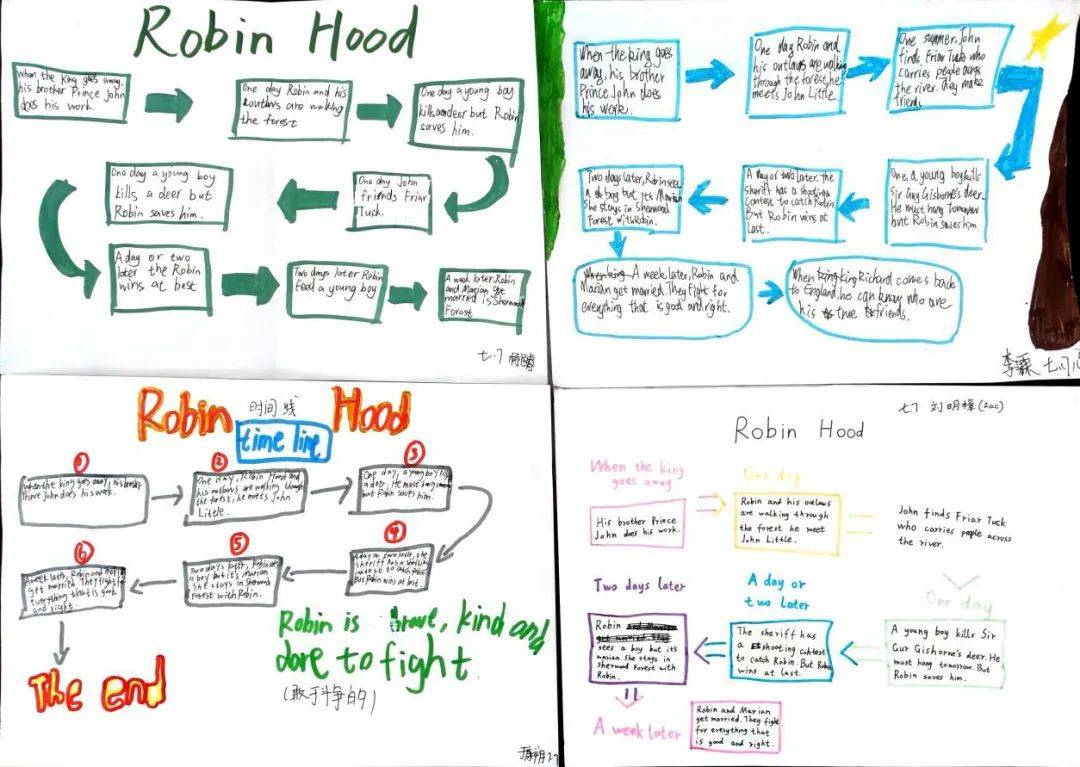 Robin Hood
When the king goes away,
his brother Prince John
does his work.
One day Robin and his
outlaws are walking
the forest
One day a young boy
kills a deer but Robin
saves him.
One day John
friends Friar
Tuck.
One day a young boy
kills a deer but
Robin saves him.
A day or two
later the Robin
wins at best
Two days later Robin
feed a young boy
A week later, Robin
and Marian get
married is Sherwood
Forest
七.7
When the king goes
away, his brother
Prince John does
his work.
One day Robin and
his outlaws are walking
through the forest, he
meets John Little.
One summer, John
finds Friar Tuck who
carries people across
the river. They make
friends.
One, a young boy kills
Sir Guy Gisborne's deer.
He must hang Tomorrow
but Robin saves him
A day or two later. the
sheriff has a shooting
contest to catch Robin
But Robin wins at
last.
Two days later, Robin sees
a boy but it's Marian
She stays in Sherwood
Forest with Robin.
A week later, Robin and
Marian get married. They fight for
everything that is good and right.
When king Richard comes back
to England, he can know who are
his true friends.
李霖 七.7
Robin 时间线 Hood
time line
①
When the king goes away, his brother
Prince John does his work.
②
One day, Robin Hood and
his outlaws are walking through
the forest, he meets John
Little.
③
One day, a young boy kills
a deer. He must hang
but Robin saves him.
④
A day or two later, the
sheriff has a shooting
contest to catch Robin
But Robin wins at last.
⑤
Two days later, Robin sees
a boy but it's Marian
she stays in Sherwood
Forest with Robin.
⑥
A week later, Robin and Marian
get married. They fight for
everything that is good
and right.
The end
Robin is brave, kind and
dare to fight
(敢于斗争的)
七.7 刘明樟(Zac)
Robin Hood
When the
king
goes away
His brother Prince
John does his work.
One day
Robin and his outlaws
are walking through
the forest he meet
John Little.
John finds Friar Tuck
who carries people across
the river.
One day
A young boy kills Sir
Gur Gishorne's deer. He
must hang tomorrow. But
Robin saves him.
A day or
two later
The sheriff has
a shooting contest
to catch Robin. But Robin
wins at last.
Two days later
Robin
sees a boy but it's
marian. She stays in
sherwood Forest with
Robin.
A week later
Robin and Marian
get married. They fight
for everything that
is good and right.